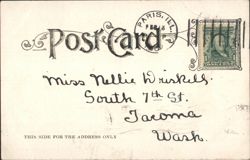 PARIS, ILL.
Post Card
Miss Nellie Driskill
South 7th St.
Tacoma
Wash.
THIS SIDE FOR THE ADDRESS ONLY